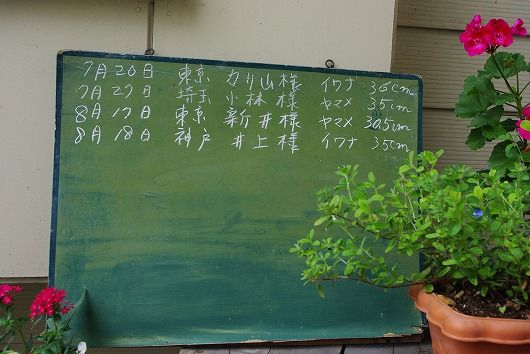 7月20日 東京 カリ山様 イワナ 36cm
7月27日 埼玉 小林様 ヤマメ 35cm
8月17日 東京 新井様 ヤマメ 30.5cm
8月18日 神戸 井上様 イワナ 35cm